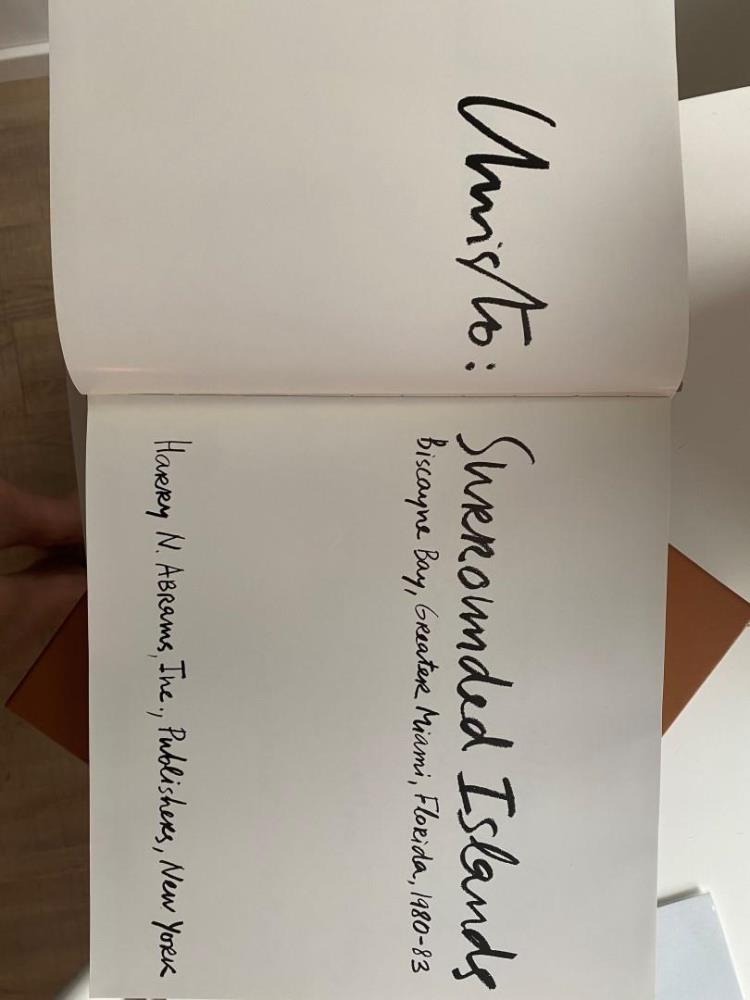 Christo:
Surrounded Islands
Biscayne Bay, Greater Miami, Florida, 1980-83
Harry N. Abrams, Inc., Publishers, New York